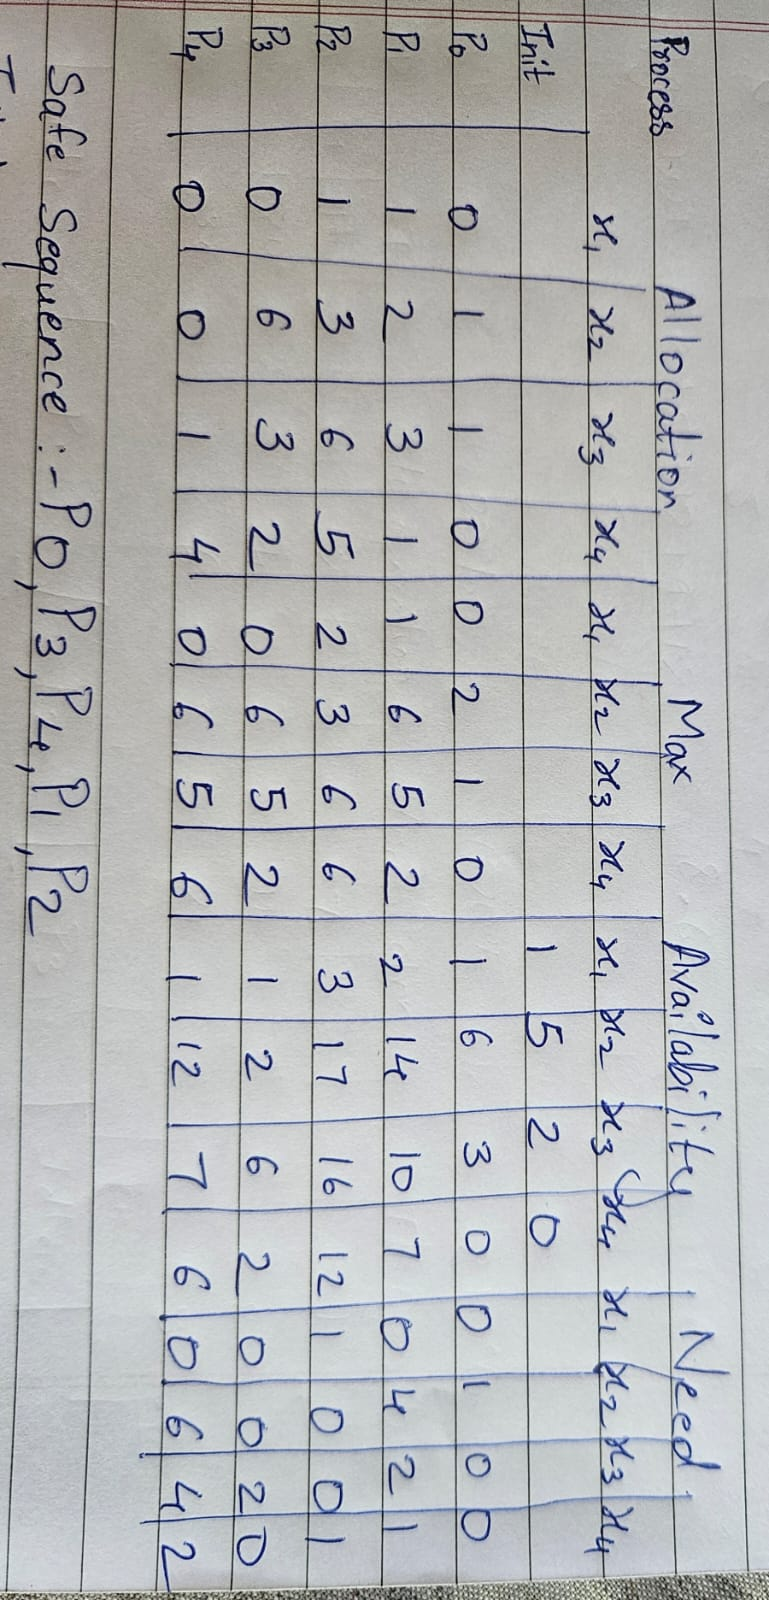 Process Allocation Max Availability Need
x₁ x₂ x₃ x₄ x₁ x₂ x₃ x₄ x₁ x₂ x₃ x₄ x₁ x₂ x₃ x₄
Init 1 5 2 0
P₀ 0 1 1 0 0 2 1 0 1 6 3 0 0 1 0 0
P₁ 1 2 3 1 1 6 5 2 2 14 10 7 0 4 2 1
P₂ 1 3 6 5 2 3 6 6 3 17 16 12 1 0 0 1
P₃ 0 6 3 2 0 6 5 2 1 2 6 2 0 0 2 0
P₄ 0 0 1 4 0 6 5 6 1 12 7 6 0 6 4 2
Safe Sequence :- P0, P3, P4, P1, P2